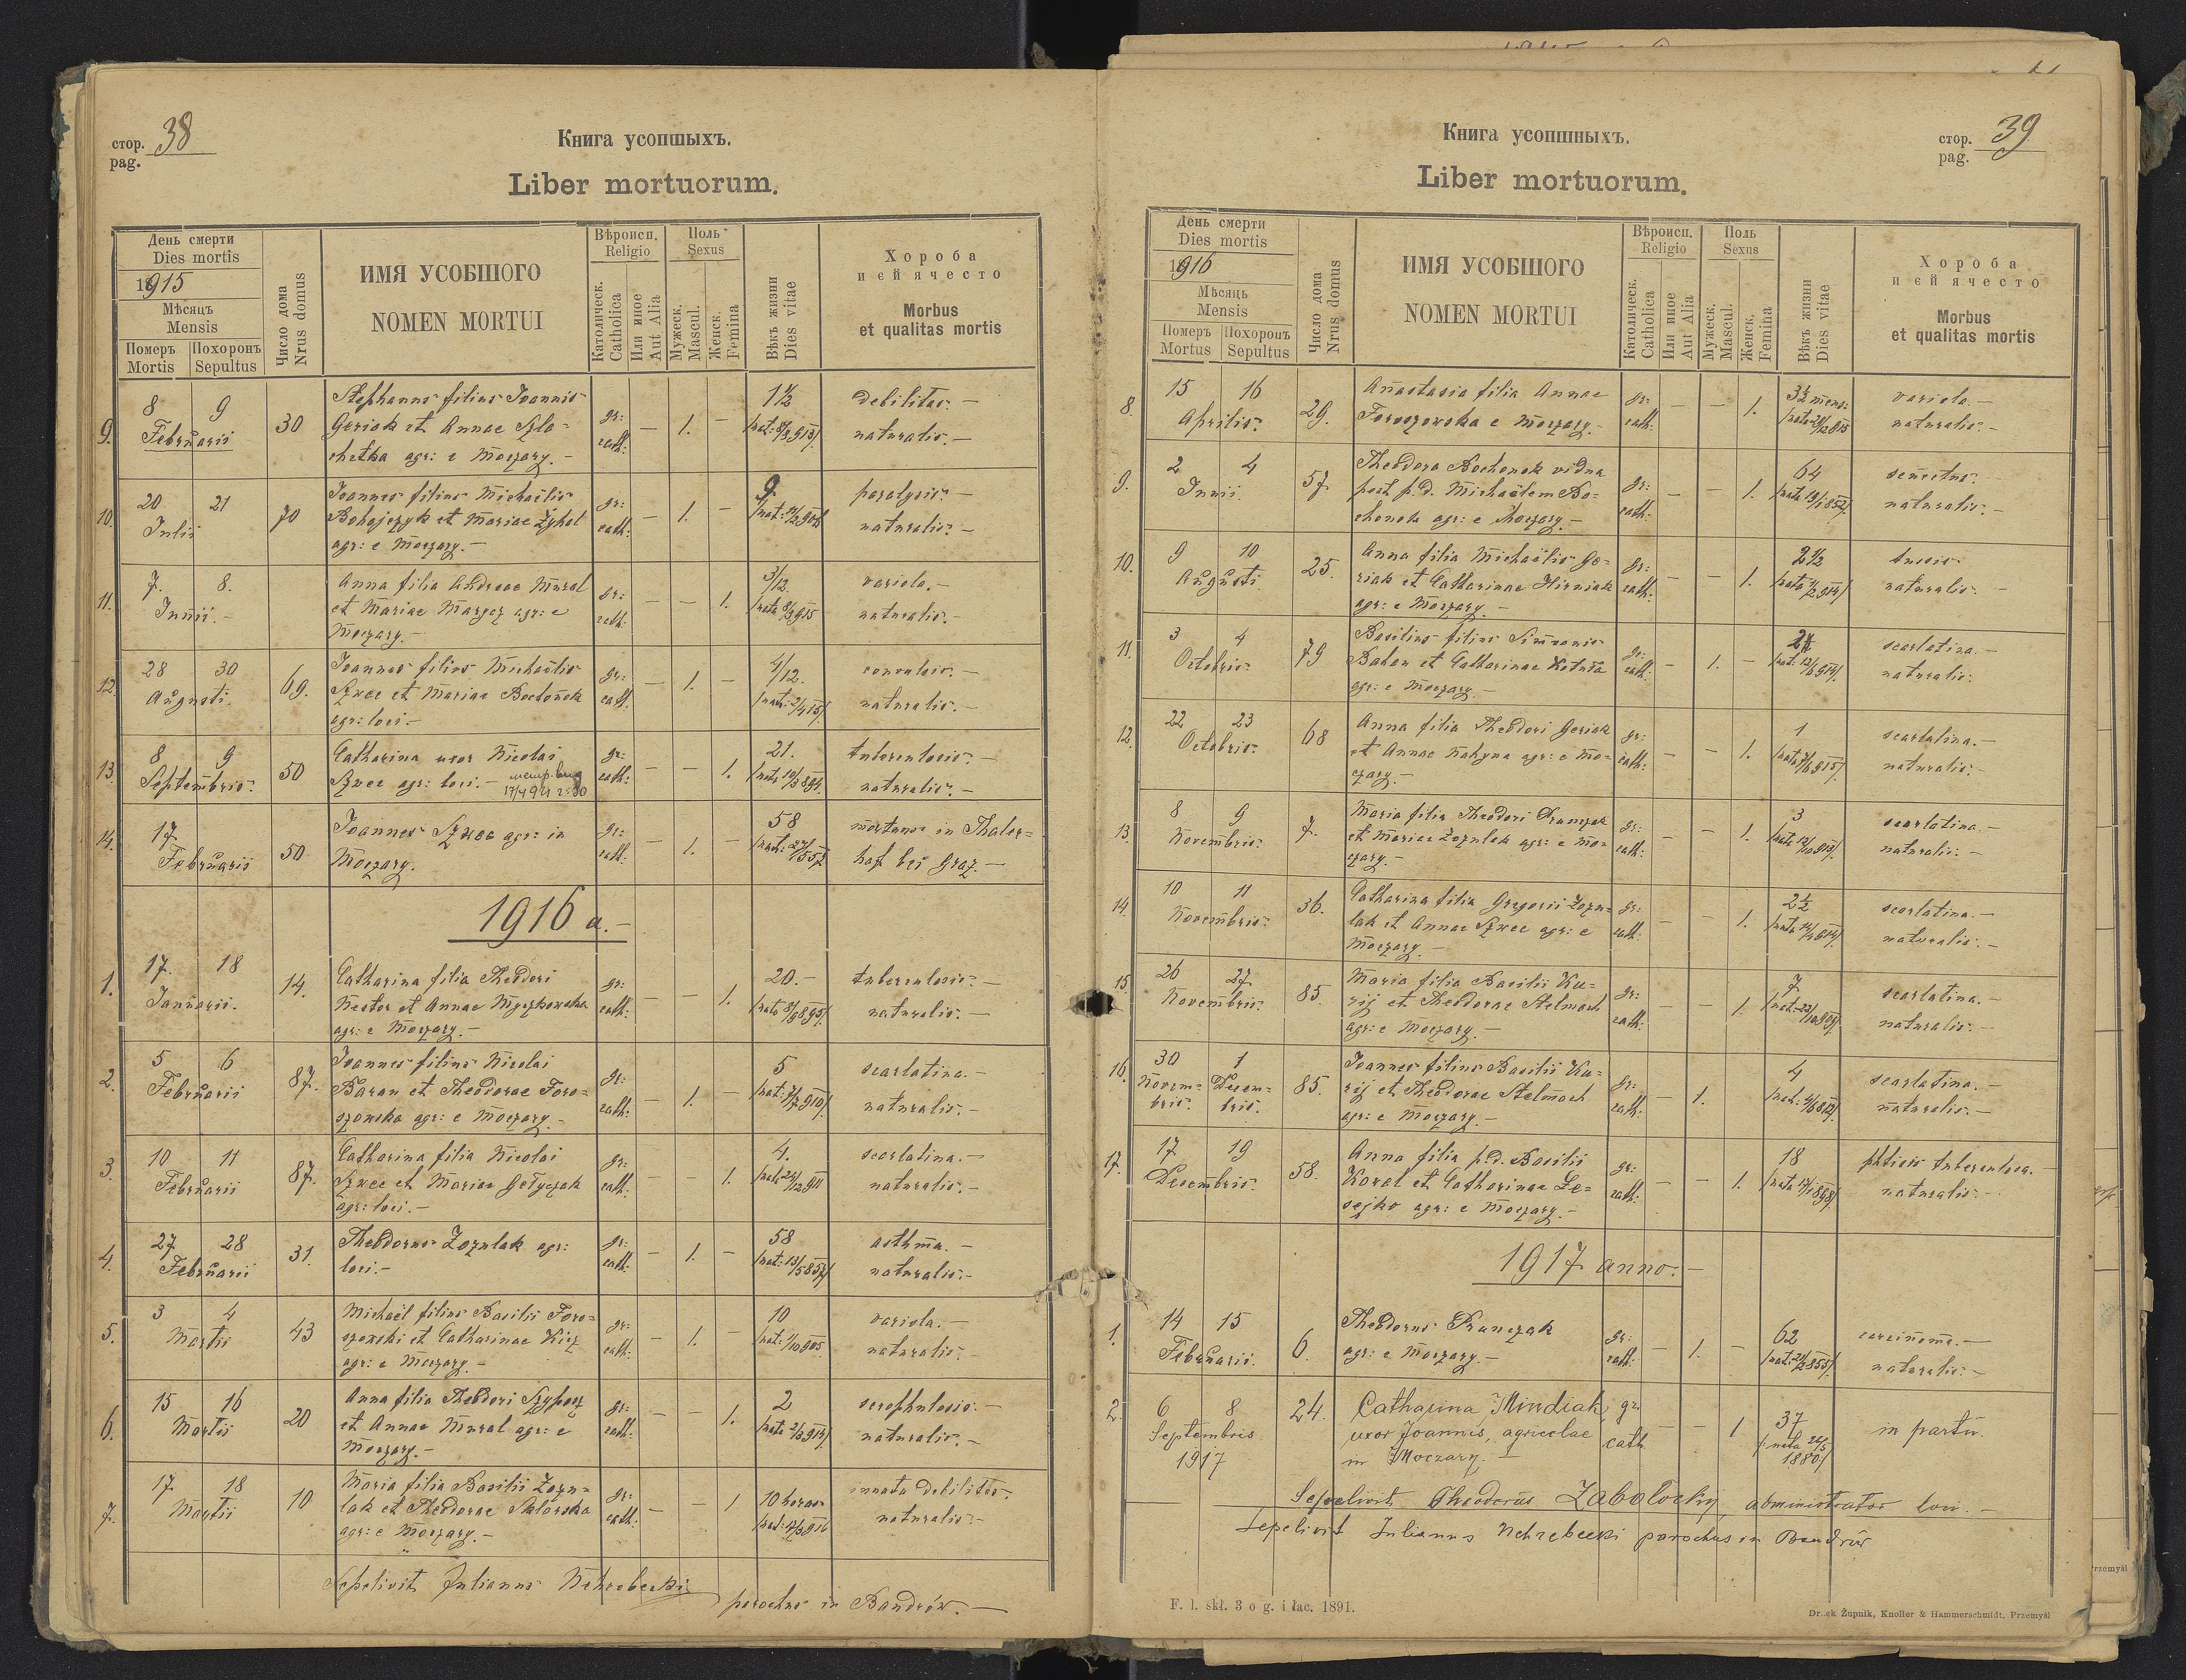 стор. 38
pag.
Книга усопшыхъ.
Liber mortuorum.
День смерти
Dies mortis
1915
Мѣсяць
Mensis
Померъ Похоронъ
Mortis Sepultus
Число дома
Nrus domus
ИМЯ УСОБШОГО
NOMEN MORTUI
Вѣроисп.
Religio
Католическ.
Catholica
Или иное
Aut Alia
Поль
Sexus
Мужеск.
Mascul.
Женск.
Femina
Вѣкъ жизни
Dies vitae
Хороба
и єй ячесто
Morbus
et qualitas mortis
9. 8 9 Februarii 30
Stephanus filius Joannis
Geriak et Annae Szla=
chetka agr: e Moczary. –
gr: cath: – 1. – 1 1/2
debilitas. –
naturalis. –
10. 20 21 Julii 70
Joannes filius Michaëlis
Bohajczyk et Mariae Zyhal
agr: e Moczary. –
gr: cath: – 1. – 9
paralysis. –
naturalis. –
11. 7. 8. Junii. –
Anna filia Andreae Mural
et Mariae agr: e
Moczary. –
gr: cath: – – 1. 3/12.
variola. –
naturalis. –
12. 28 30 Augusti. 69.
Joannes filius Michaëlis
Szwec et Mariae
agr: loci. –
gr: cath: – 1. – 4/12.
naturalis. –
13. 8 9 Septembris. 50
Catharina uxor Nicolai
Szwec agr: loci. –
gr: cath: – – 1. 21.
tuberculosis. –
naturalis. –
14. 17. Februarii 50
Joannes Szwec agr: in
Moczary.
gr: cath: – 1. – 58
mortuus in Thaler=
hof bei Graz. –
1916 a. –
1. 17. 18 Januarii. 14.
Catharina filia Theodori
Nestor et Annae Myczkowska
agr: e Moczary. –
gr: cath: – – 1. 20. –
tuberculosis. –
naturalis. –
2. 5 6 Februarii 87.
Joannes filius Nicolai
Baran et Theodorae Toro=
szowska agr: e Moczary. –
gr: cath: – 1. – 5
scarlatina. –
naturalis. –
3. 10 11 Februarii 87.
Catharina filia Nicolai
Szwec et Mariae
agr: loci. –
gr: cath: – – 1. 4.
scarlatina. –
naturalis. –
4. 27 28 Februarii 31.
Theodorus Zozulak agr:
loci. –
gr: cath: – 1. – 58
asthma. –
naturalis. –
5. 3 4 Martii 43
Michaël filius Basilii Toro=
szowski et Catharinae
agr: e Moczary. –
gr: cath: – 1. – 10
variola. –
naturalis. –
6. 15 16 Martii 20
Anna filia Theodori
et Annae Mural agr: e
Moczary. –
gr: cath: – – 1. 2
scrophulosis. –
naturalis. –
7. 17. 18 Martii 10
Maria filia Basilii Zozu=
lak et Theodorae
agr: e Moczary. –
gr: cath: – – 1 10 horas
innata debilitas.
naturalis. –
Sepelivit Julianus Nehrebecki
parochus in Bandrów. –
стор. 39
pag.
Книга усопшныхъ.
Liber mortuorum.
День смерти
Dies mortis
1916
Мѣсяць
Mensis
Померъ Похоронъ
Mortus Sepultus
Число дома
Nrus domus
ИМЯ УСОБШОГО
NOMEN MORTUI
Вѣроисп.
Religio
Католическ.
Catholica
Или иное
Aut Alia
Поль
Sexus
Мужеск.
Mascul.
Женск.
Femina
Вѣкъ жизни
Dies vitae
Хороба
и єй ячесто
Morbus
et qualitas mortis
8. 15 16 Aprilis. 29.
Anastasia filia Annae
Toroszowska e Moczary. –
gr: cath: – – 1. 3 1/2 mens:
variola. –
naturalis. –
9. 2 4 Junii 57.
Theodora Bochonok vidua
post p. d. Michaëlem Bo=
chonok agr: e Moczary. –
gr: cath: – – 1. 64
naturalis. –
10. 9 10 Augusti 25.
Anna filia Michaëlis Ge=
riak et Catharinae Hirniak
agr: e Moczary. –
gr: cath: – – 1. 2 1/2
tussis.
naturalis. –
11. 3 4 Octobris. 79
Basilius filius Simeonis
et Catharinae
agr: e Moczary. –
gr: cath: – 1. –
scarlatina. –
naturalis.
12. 22 23 Octobris. 68
Anna filia Theodori Geriak
et Annae agr: e Mo=
czary. –
gr: cath: – – 1. 1
scarlatina. –
naturalis. –
13. 8 9 Novembris. 7.
Maria filia Theodori
et Mariae Zozulak agr: e Mo=
czary. –
gr: cath: – – 1. 3
scarlatina. –
naturalis. –
14. 10 11 Novembris. 36.
Catharina filia Gregorii Zozu=
lak et Annae Szwec agr: e
Moczary. –
gr: cath: – – 1. 2 1/2
scarlatina. –
naturalis. –
15. 26 27. Novembris. 85.
Maria filia Basilii Ku=
rij et Theodorae Stelmach
agr: e Moczary. –
gr: cath: – 1. 7.
scarlatina. –
naturalis. –
16. 30 Novem=bris. 1 Decem=bris. 85.
Joannes filius Basilii Ku=
rij et Theodorae Stelmach
agr: e Moczary. –
gr: cath: – 1. 4
scarlatina. –
naturalis. –
17. 17 19 Decembris. 58.
Anna filia p. d. Basilii
Kowal et Catharinae Le=
sejko agr: e Moczary. –
gr: cath: – – 1. 18
phtisis tuberculosa. –
naturalis. –
1917 anno. –
1. 14 15 Februarii. 6.
Theodorus
agr: e Moczary. –
gr: cath: – 1. – 62
carcinoma. –
naturalis. –
2. 6 8 Septembris 1917 24.
Catharina Mindiak,
uxor Joannis, agricolae
in Moczary. –
gr. cath – 1 37
in partu.
Sepelivit Theodorus Zabołockij, administrator loci. –
Sepelivit Julianus Nehrebecki parochus in Bandrów
F. l. skł. 3 o g. i łac. 1891.
Dr..ek Żupnik, Knoller & Hammerschmidt, Przemyśl